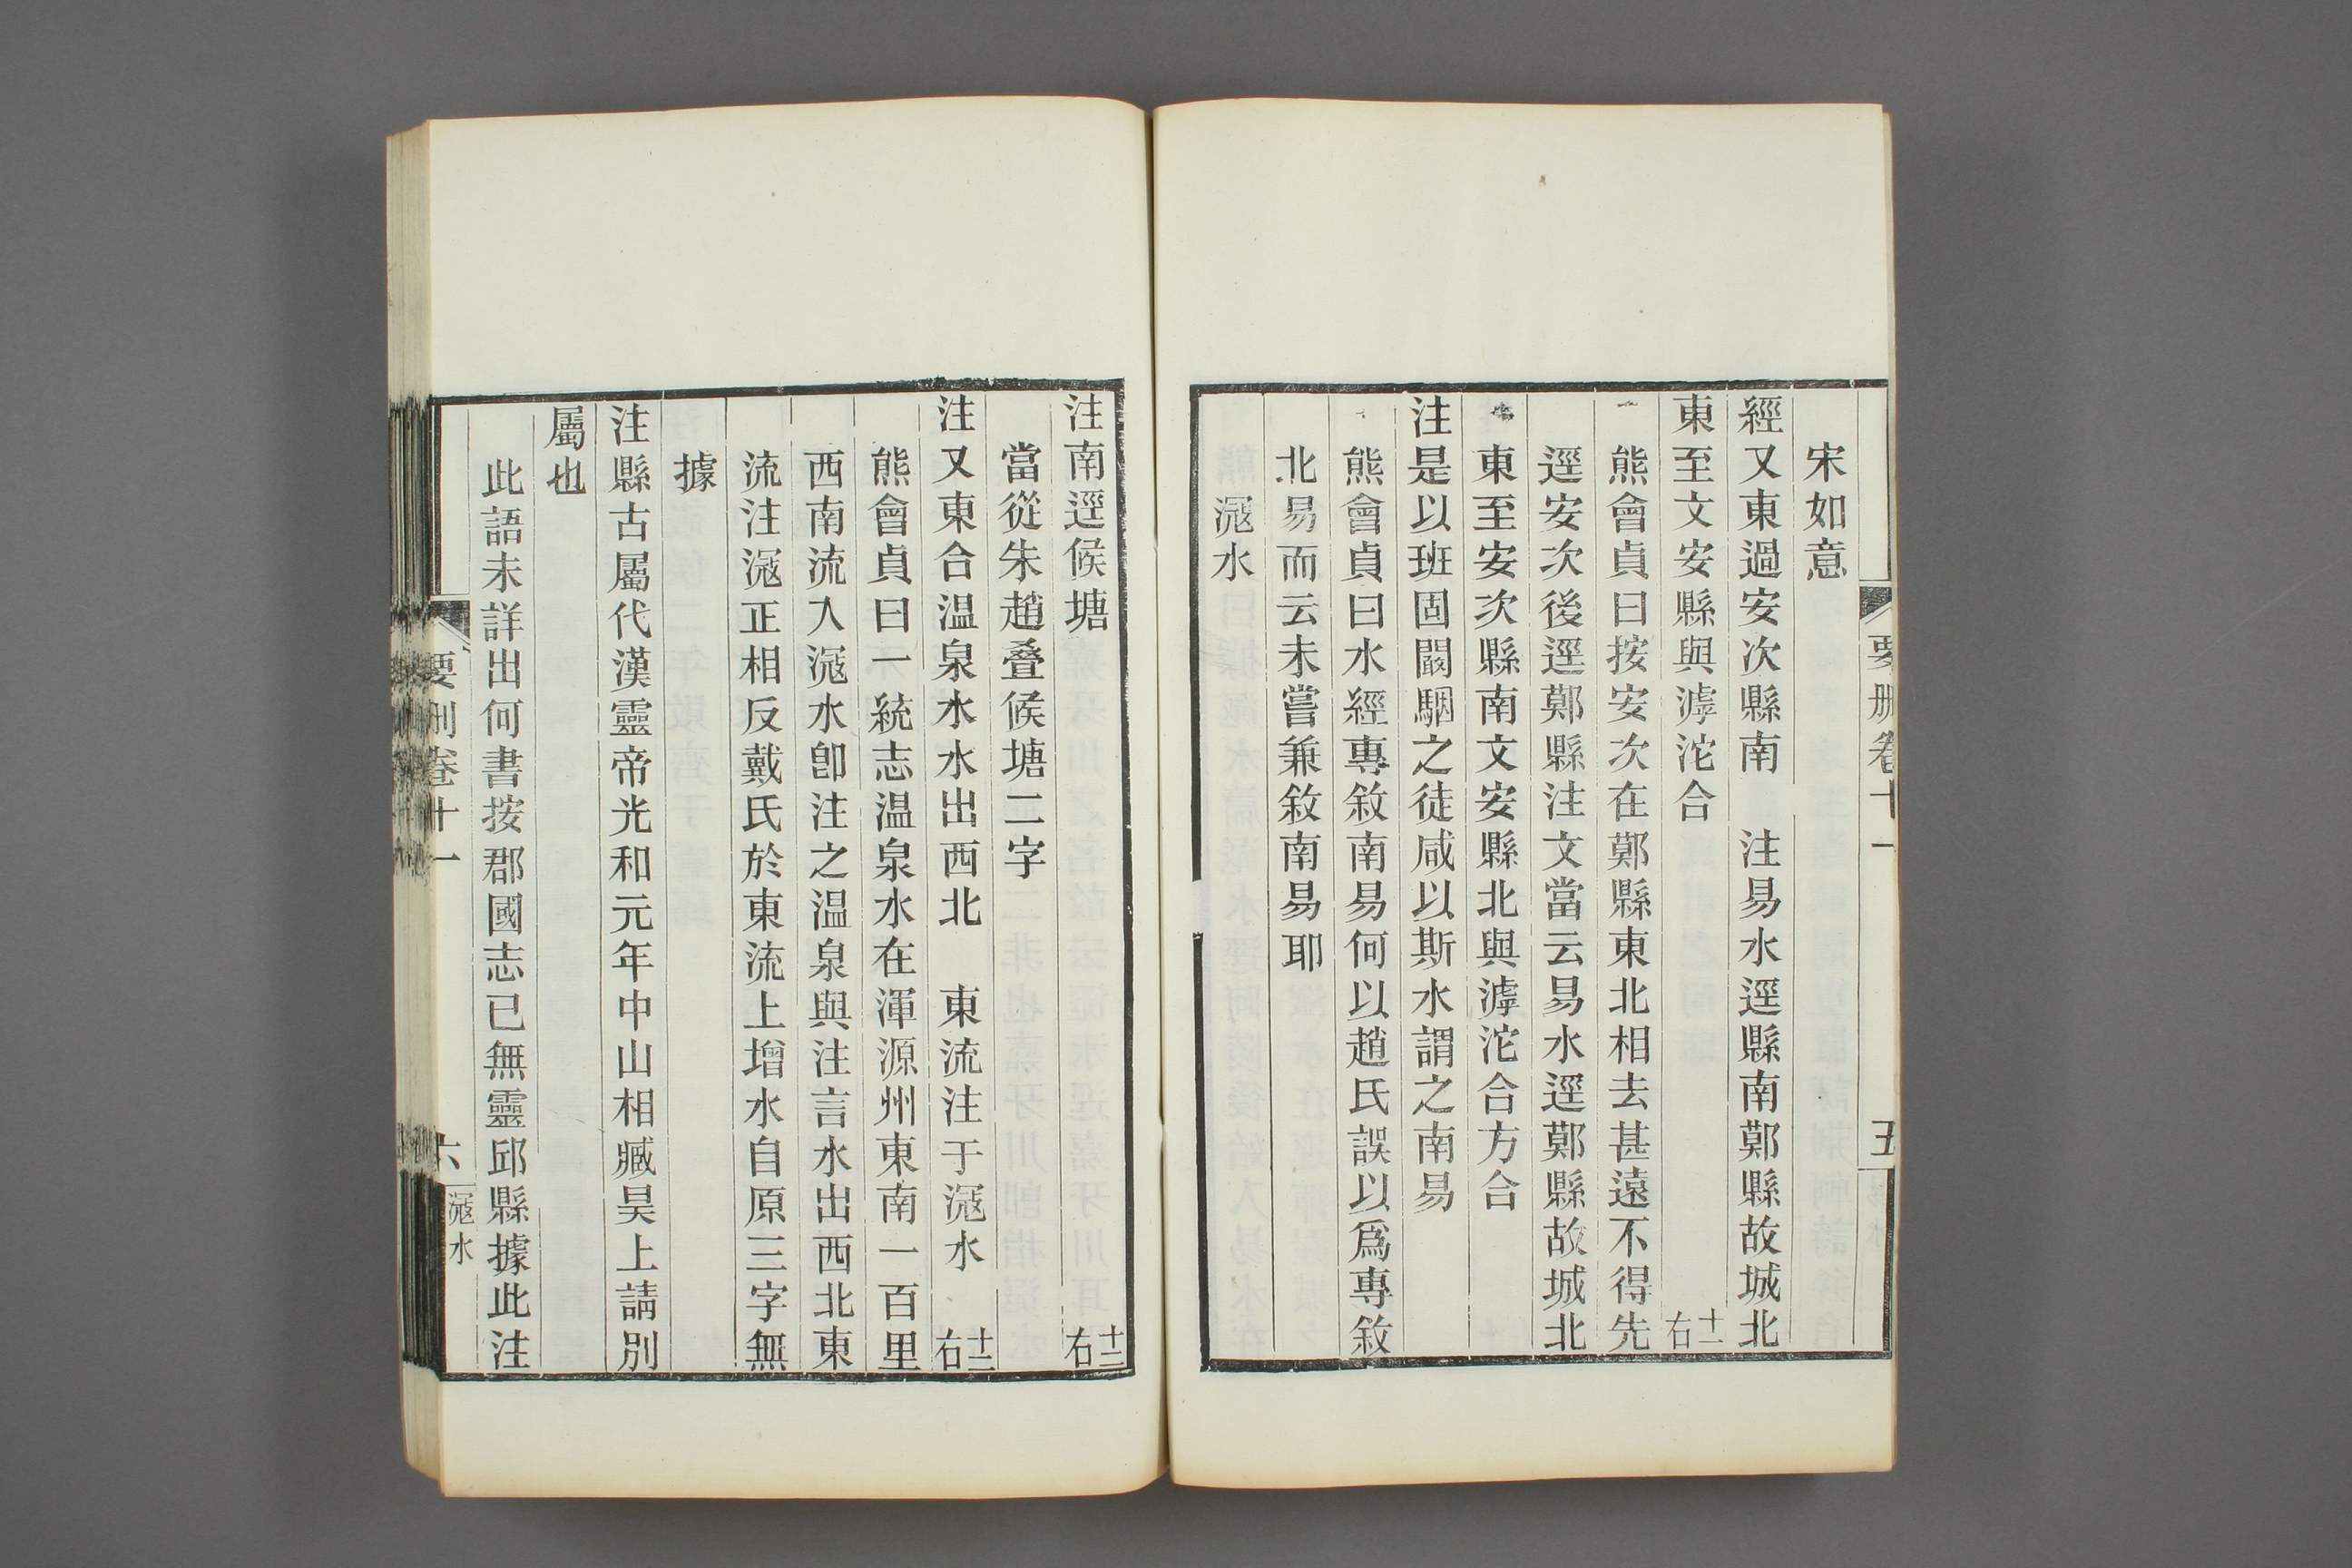 要删卷十一 五
宋如意
經又東過安次縣南 注易水逕縣南鄚縣故城北
東至文安縣與滹沱合 十一右
熊會貞曰按安次在鄚縣東北相去甚遠不得先
逕安次後逕鄚縣注文當云易水逕鄚縣故城北
東至安次縣南文安縣北與滹沱合方合
注是以班固闞駰之徒咸以斯水謂之南易
熊會貞曰水經專敘南易何以趙氏誤以爲專敘
北易而云未嘗兼敘南易耶
滱水
注南逕候塘 十二右
當從朱趙叠候塘二字
注又東合温泉水水出西北 東流注于滱水 十二右
熊會貞曰一統志温泉水在渾源州東南一百里
西南流入滱水卽注之温泉與注言水出西北東
流注滱正相反戴氏於東流上增水自原三字無
據
注縣古屬代漢靈帝光和元年中山相臧昊上請別
屬也
此語未詳出何書按郡國志已無靈邱縣據此注
要删卷十一 六 滱水